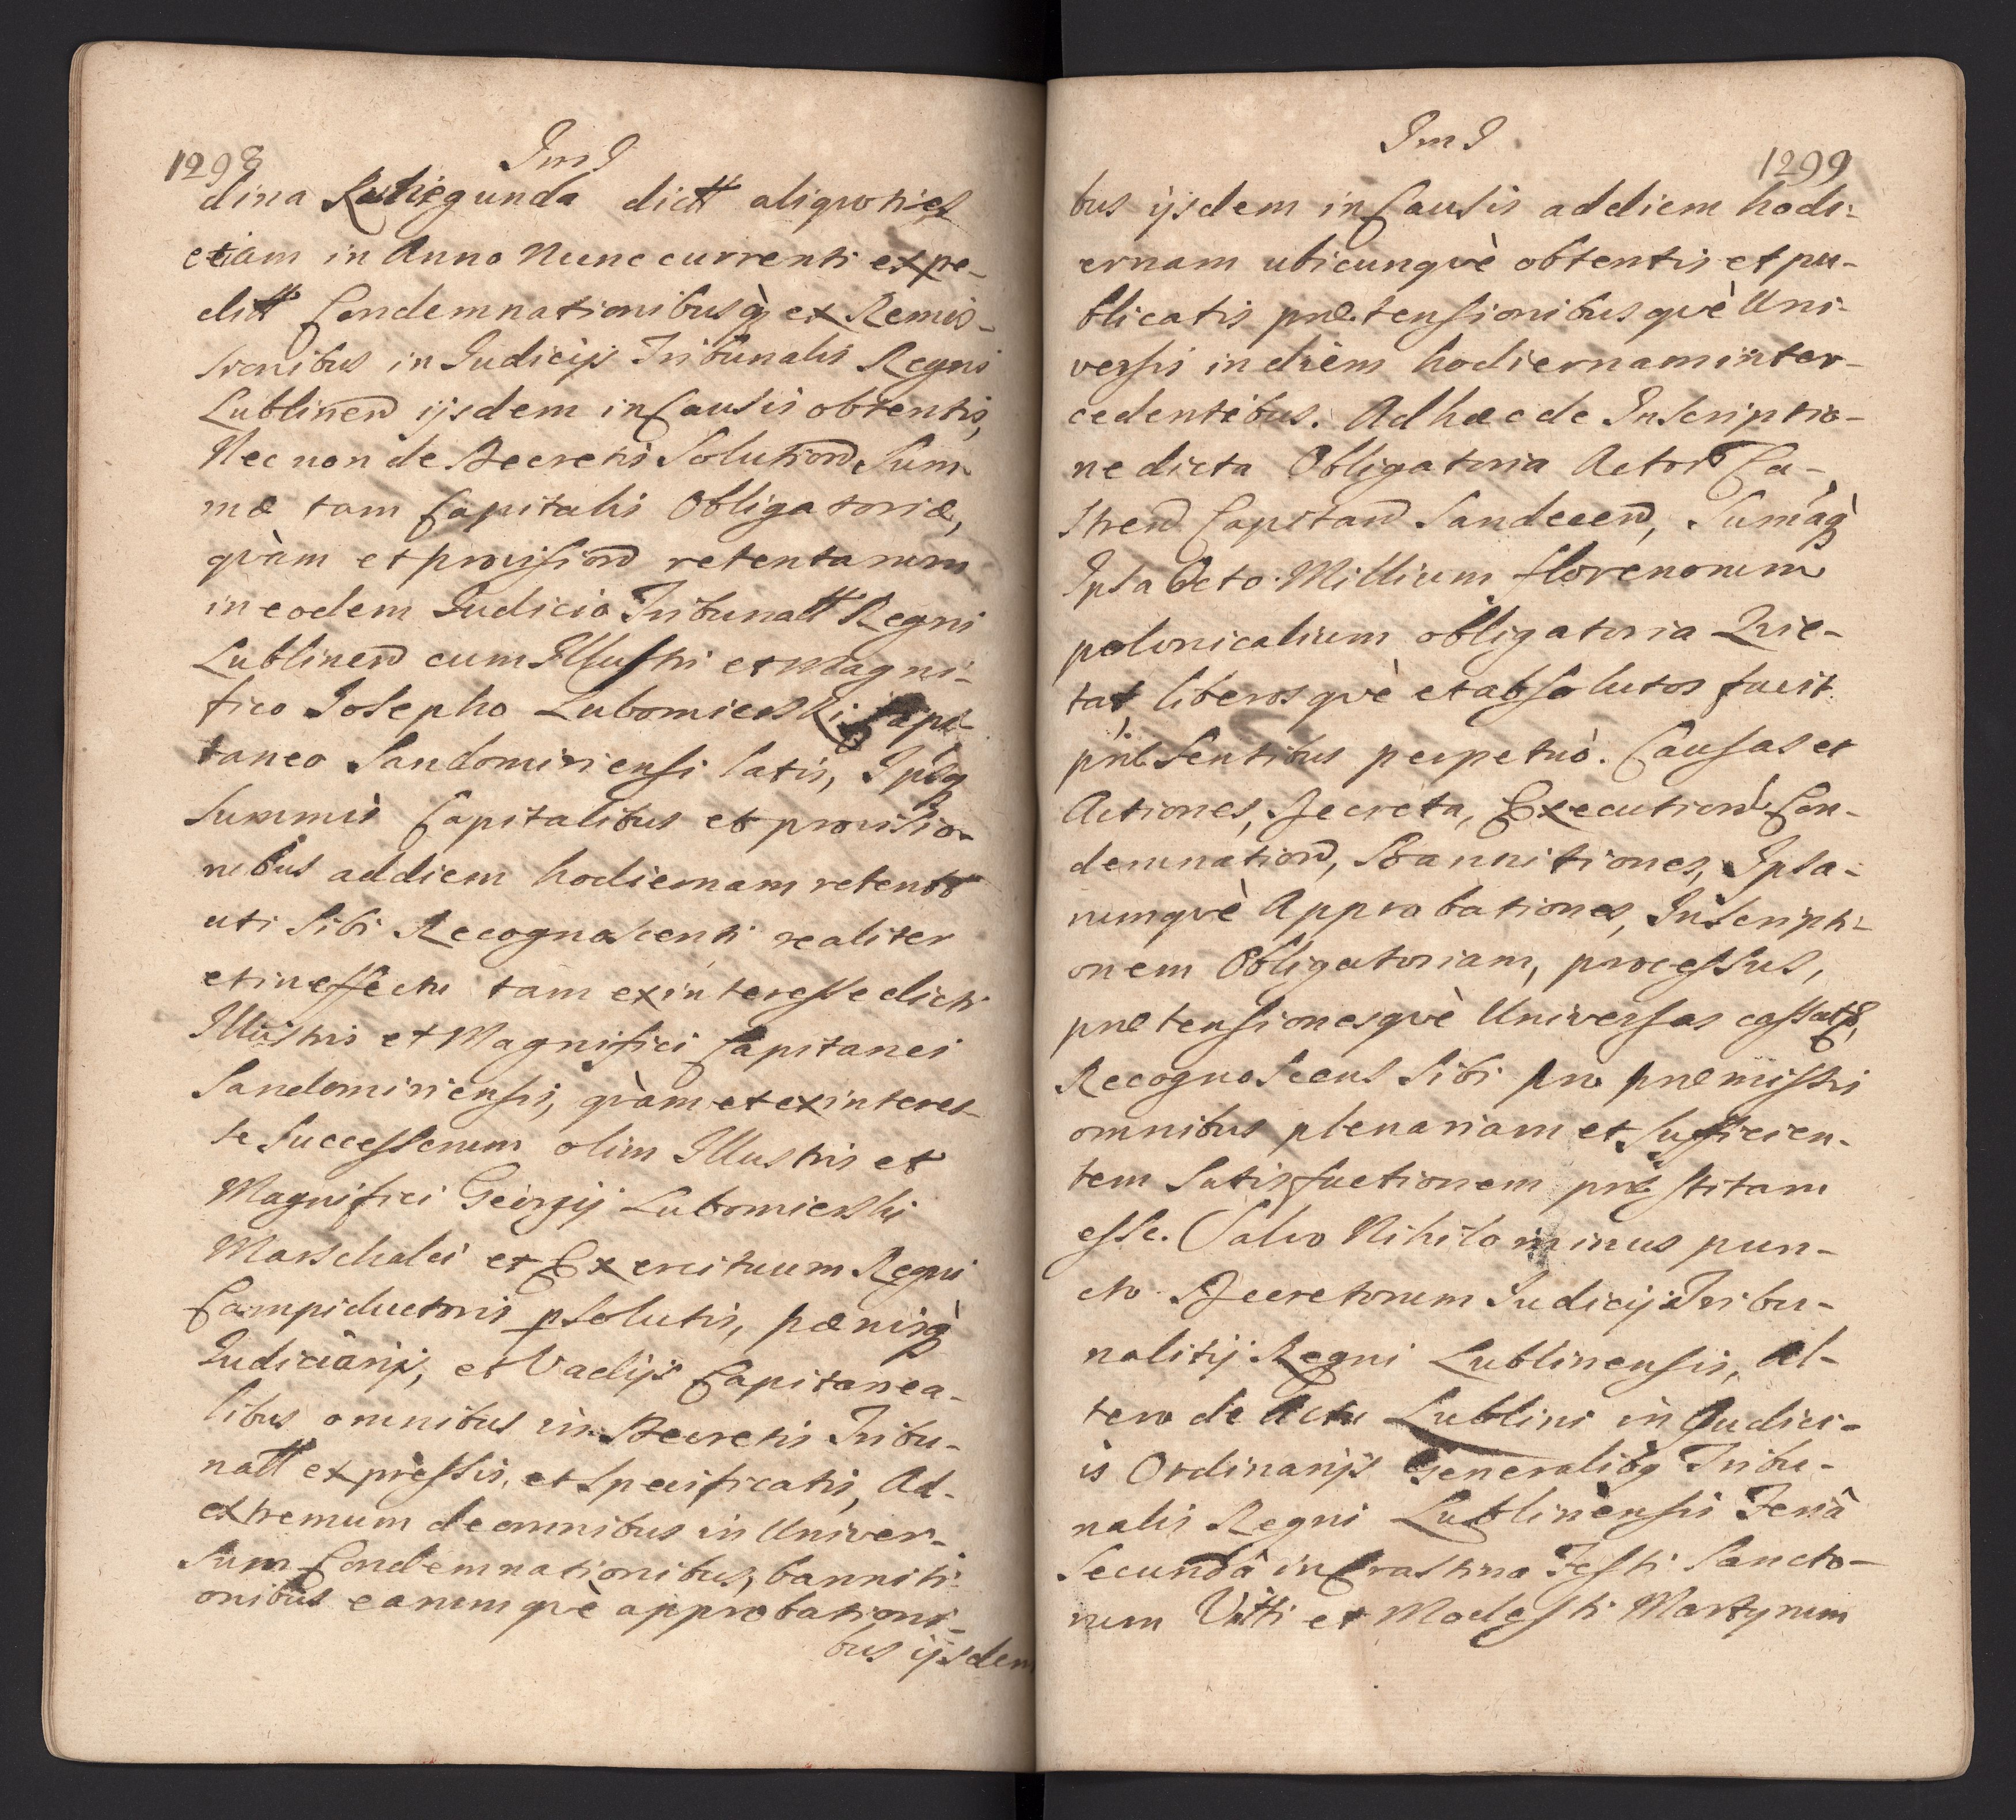 1298
Im J
dina Kuhegunda dictt aliquoties
etiam in Anno Nunc currenti expe-
ditt Condemnationibusq̀ ex Remis-
sionibus in Judicijs Tribunalis Regni
Lublinen ijsdem in Causis obtentis,
Nec non de Decretis Solution Sum-
mæ tam Capitalis Obligatoriæ,
quàm et provision retentarum
in eodem Judicio Tribunatt Regni
Lublinen cum Illustri et Magni-
fico Josepho Lubomierski Capi-
taneo Sandomiriensi latis, Ipsq
Summis Capitalibus et provisio-
nibus addiem hodiernam retentt
uti sibi Recognoscenti realiter
et in effectu tam ex interesse dicti
Illustris et Magnifici Capitanei
Sandomiriensis, quàm et ex interes-
se Successorum olim Illustris et
Magnifici Georgij Lubomierski
Marschalci et Exercituum Regni
Campiductoris psolutis, pænisq̀
Judiciarijs, et Vadijs Capitanea-
libus omnibus in Decretis Tribu-
natt expressis, et Specificatis, Ad-
extremum de omnibus in Univer-
sum Condemnationibus, banniti-
onibus earumquè approbationi-
bus ijsdem
Im J
1299
bus ijsdem in Causis addiem hodi-
ernam ubicunquè obtentis et pu-
blicatis prætensionibusquè Uni-
versis in diem hodiernam inter-
cedentibus. Ad hæc de Inscriptio-
ne dicta Obligatoria Actor Ca-
stren Capitan Sandecen, Sumaq̀
Ipsa Octo Millium florenorum
polonicalium obligatoria Quie-
tat liberosquè et absolutos facit
præsentibus perpetuò. Causas et
Actiones, Decreta, Execution Con-
demnation, Bannitiones, Ipsa-
rumquè Approbationes, Inscripti-
onem Obligatoriam, processus,
prætensionesquè Universas cassatq,
Recognoscens sibi pro præmissis
omnibus plenariam et Sufficien-
tem Satisfactionem præstitam
esse. Salvo Nihilominus pun-
cto Decretorum Judicij Tribu-
nalitij Regni Lublinensis, Al-
tero de Actu Lublini in Judici-
is Ordinarijs Generalibq Tribu-
nalis Regni Lublinensis Feriâ
Secundâ in Crastino Festi Sancto-
rum Vitti et Modesti Martyrum